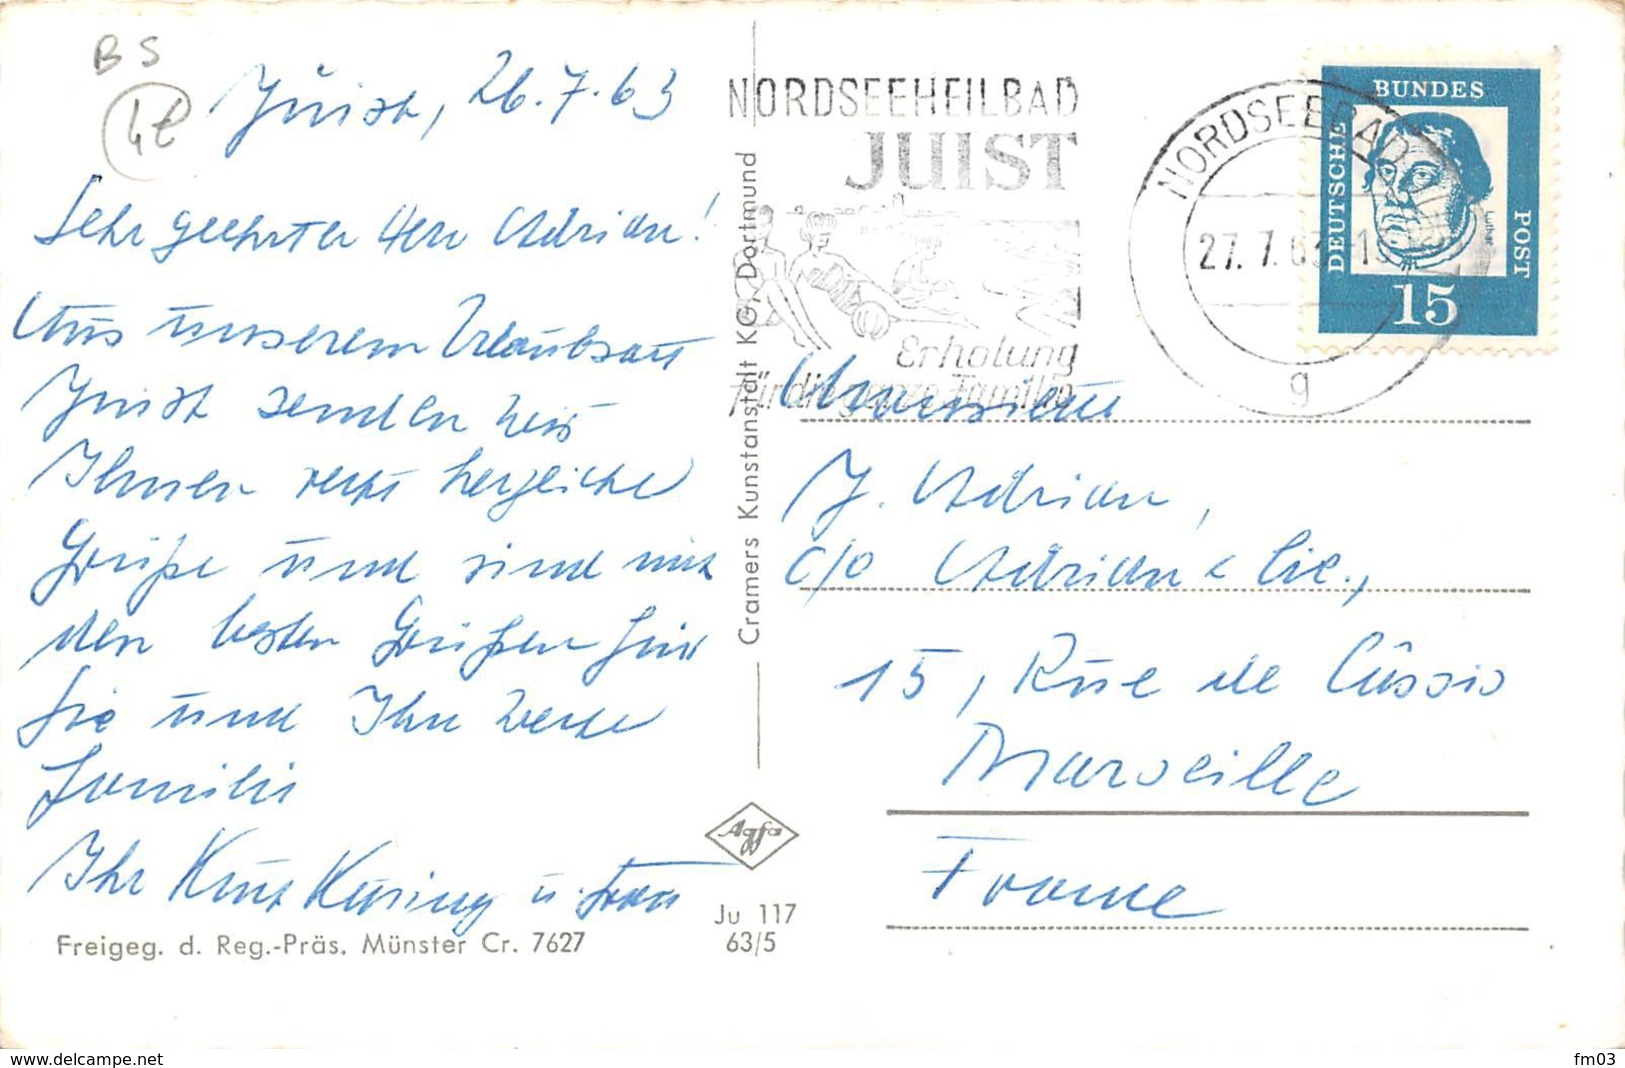 BS
4€
Juist, 26.7.63
Sehr geehrter Herr Adrian!
Aus unserem Urlaubsort
Juist senden wir
Ihnen recht herzliche
Grüße und sind mit
den besten Grüßen für
Sie und Ihre werte
Familie
Ihr Kurt Küring u. Frau
Freigeg. d. Reg.-Präs. Münster Cr. 7627
Cramers Kunstanstalt KG, Dortmund
Agfa
Ju 117
63/5
NORDSEEHEILBAD
JUIST
Erholung
für die ganze Familie
NORDSEEBAD
27.7.63
g
BUNDES
DEUTSCHE
POST
Luther
15
J. Adrian,
c/o Adrian & Cie.,
15, Rue de Cassis
Marseille
France
www.delcampe.net
fm03